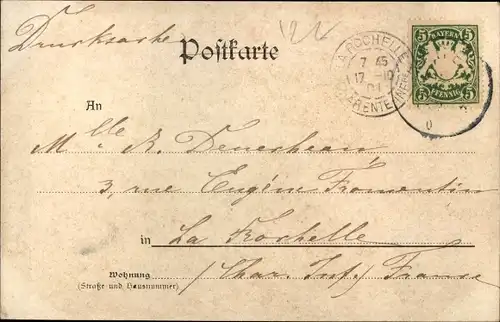 Drucksache
12
Postkarte
LA ROCHELLE
7 45
17 -10
01
CHARENTE INFRE
5 BAYERN 5
5 PFENNIG 5
An
Mlle R. Denechean,
3, rue Eugène Fromentin
in La Rochelle
Wohnung
(Straße und Hausnummer)
(Char. Inf.) France